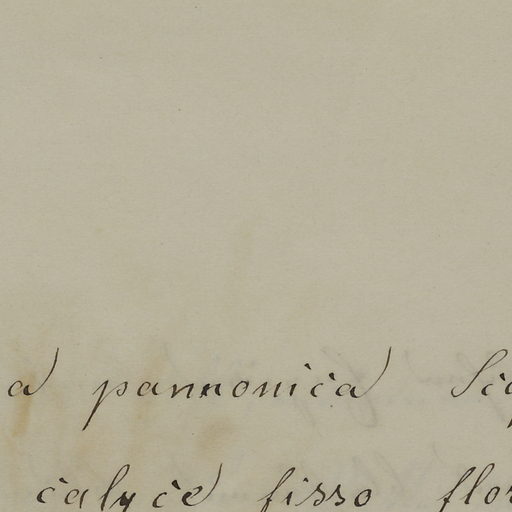 a pannonica Sco
calyce fisso flor